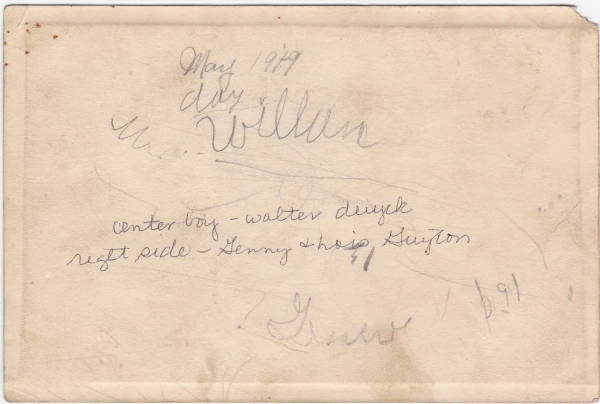 May 1929
day
Mrs. Willan
center boy - walter deuyck
right side - Genny & Lois Guyton